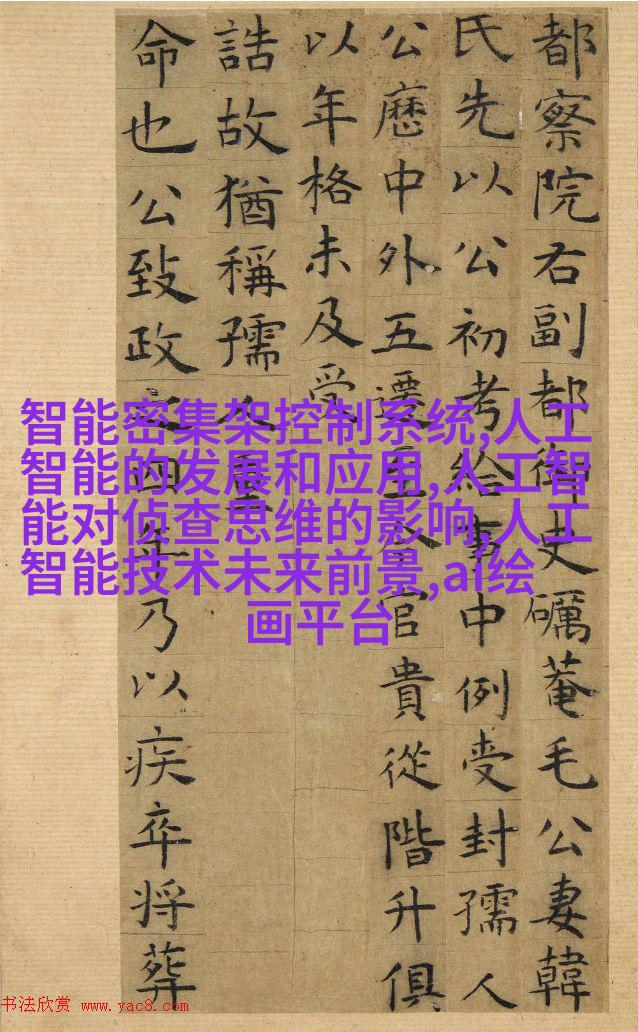 都察院右副都御史礪菴毛公妻韓
氏先以公初考給事中例受封孺人
公歷中外五遷至今官貴從階升俱
以年格未及受
誥故猶稱孺人
命也公致政之四年乃以疾卒将葬
智能密集架控制系统,人工
智能的发展和应用,人工智
能对侦查思维的影响,人工
智能技术未来前景,ai绘
画平台
书法欣赏 www.yac8.com